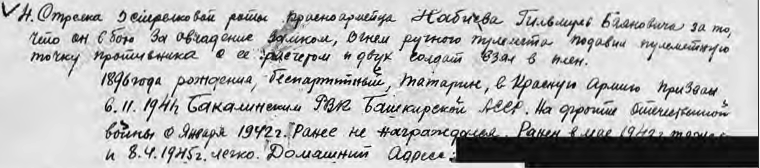 4. Стрелка 3 стрелковой роты красноармейца Набиева Гильмулу Баяновича за то,
что он в бою за овладение замком, огнем ручного пулемета подавил пулеметную
точку противника с ее расчетом и двух солдат взял в плен.
1896 года рождения, беспартийный, татарин, в Красную Армию призван
6.11.1941 Бакалинским РВК Башкирской АССР. На фронте отечественной
войны с Января 1942г. Ранее не награждался. Ранен в мае 1942г
и 8.4.1945г. легко. Домашний Адрес: